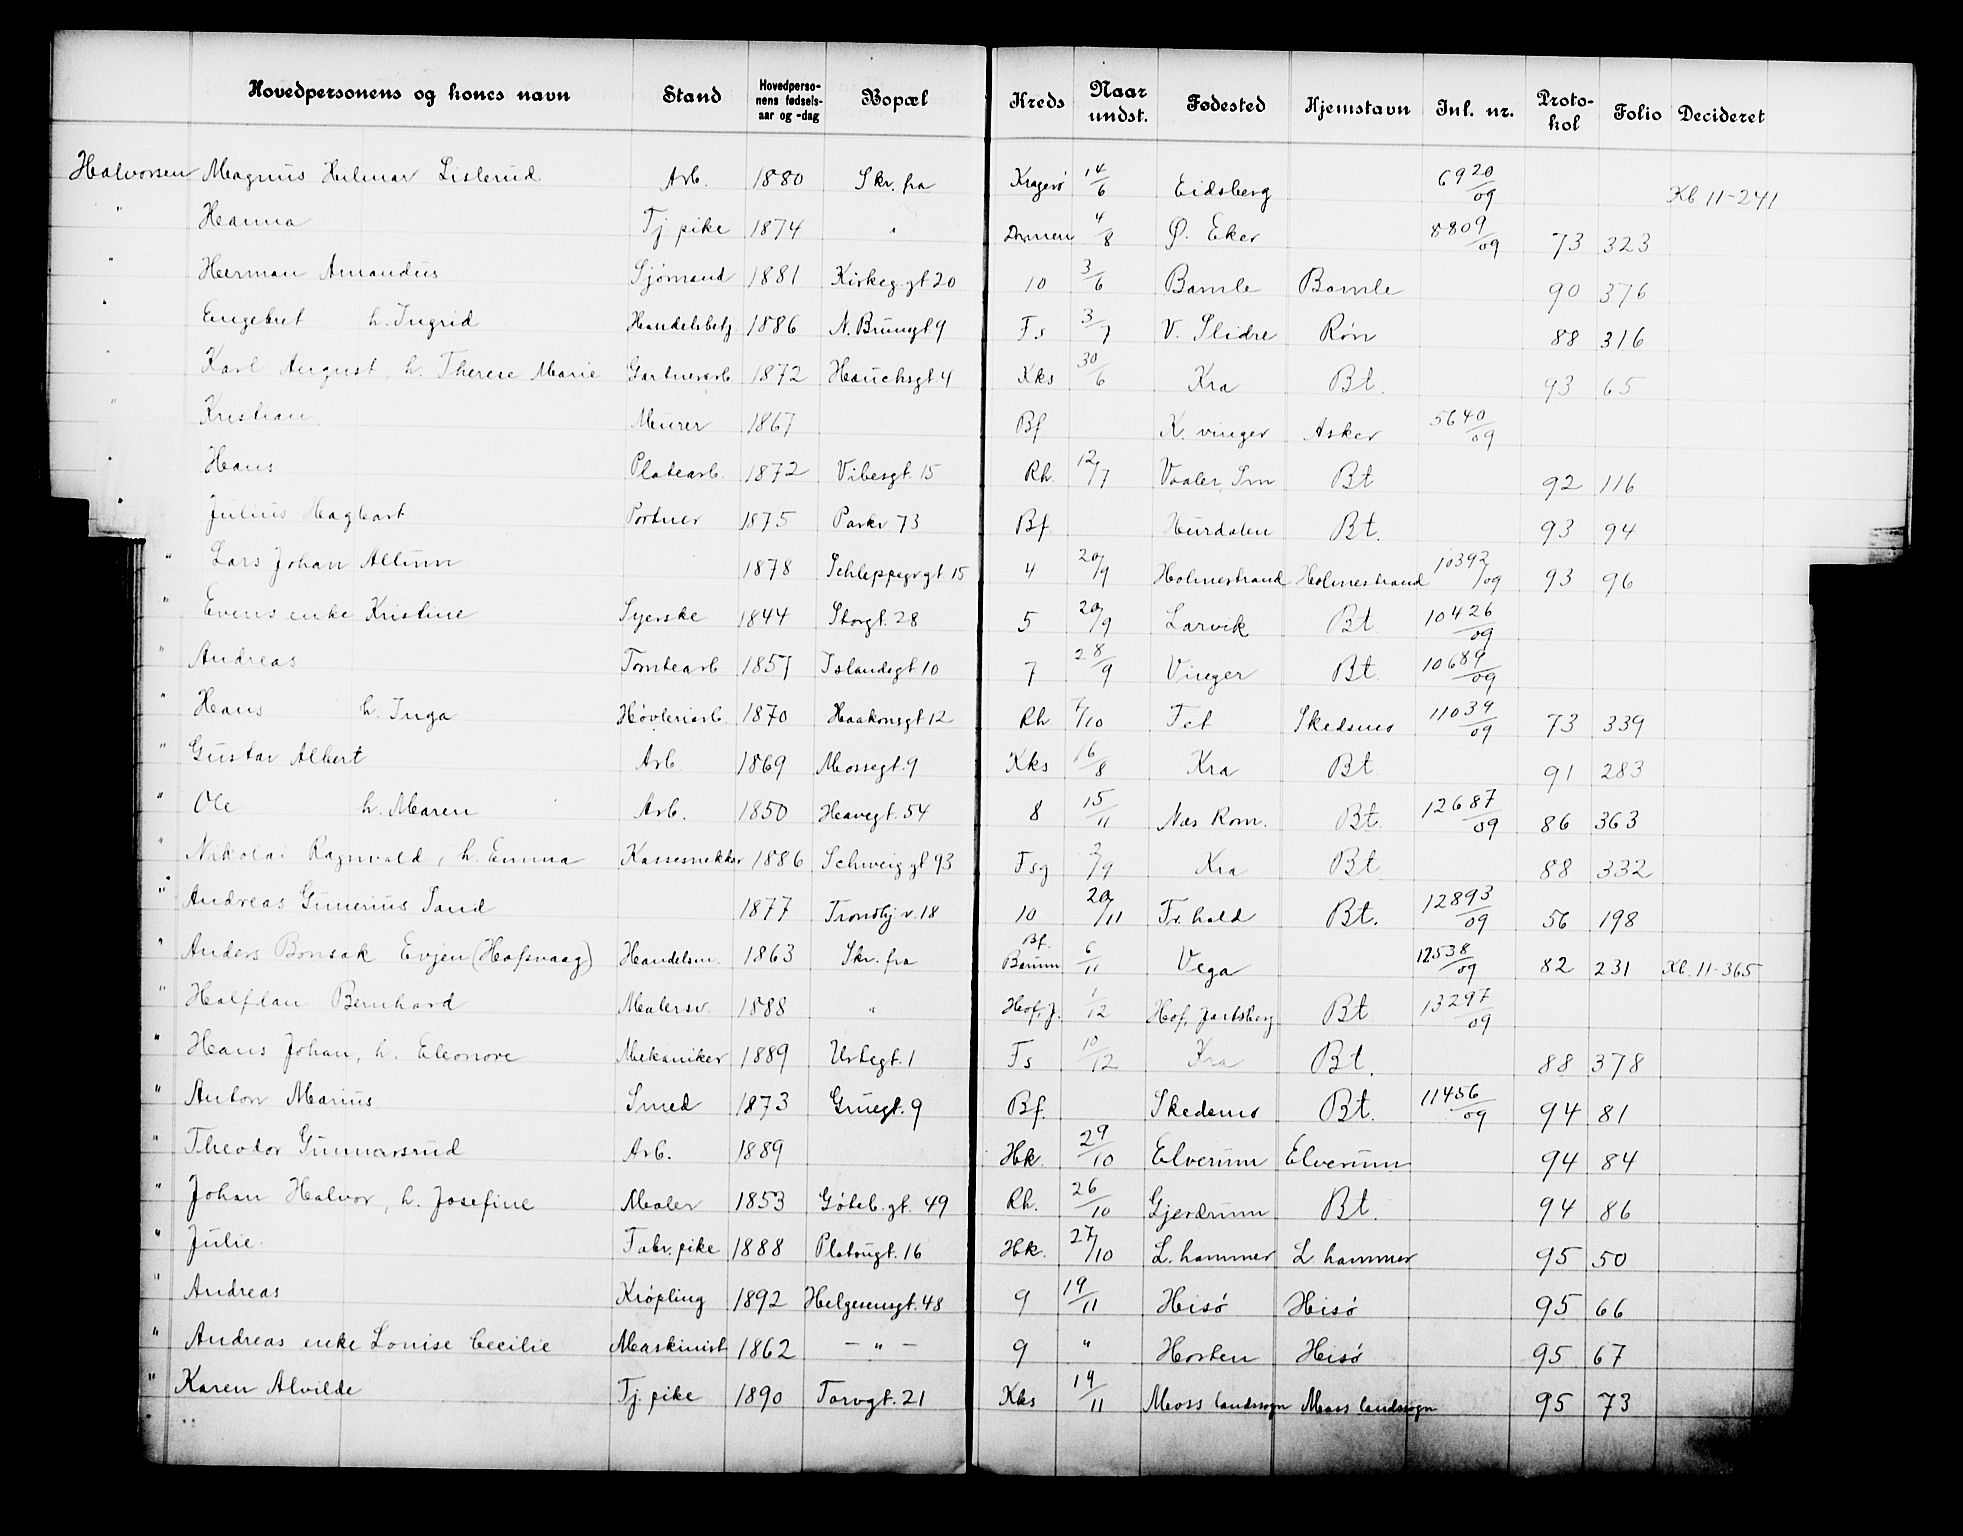 Hovedpersonens og kones navn Stand Hovedperso-nens fødsels-aar og -dag Bopæl Kreds Naar undst. Fødested Hjemstavn Inl. nr. Proto-kol Folio Decideret
Halvorsen Magnus Hilmar Lislerud Arb. 1880 Skr. fra Kragerø 14/6 Eidsberg 6920/09 Kb 11-241
" Hanna Tj pike 1874 " Drmen 4/8 Ø. Eker 8809/09 73 323
" Herman Amandus Sjømand 1881 Kirkeg. gt 20 10 3/6 Bamle Bamle 90 376
" Engebret h. Ingrid Handelsbetj 1886 N. Brungt 9 Fs 3/7 V. Slidre Røn 88 316
" Karl August, h. Therese Marie Gartnerarb 1872 Hauchsgt 4 Kks 30/6 Kra Bt. 93 65
" Kristian Murer 1867 Bf K. vinger Asker 5640/09
" Hans Platearb. 1872 Vibesgt. 15 Rh. 12/7 Vaaler, Smn Bt 92 116
" Julius Hagbart Portner 1875 Parkv 73 Bf. Hurdalen Bt. 93 94
" Lars Johan Allum 1878 Schleppegr gt 15 4 20/9 Holmestrand Holmestrand 10392/09 93 96
" Evens enke Kristine Syerske 1844 Storgt. 28 5 20/9 Larvik Bt. 10426/09
" Andreas Tomtearb 1857 Islandsgt 10 7 28/9 Vinger Bt. 10689/09
" Hans h. Inga Høvleriarb. 1870 Haakonsgt 12 Rh 7/10 Fet Skedsmo 11039/09 73 339
" Gustav Albert Arb 1869 Mossegt. 9 Kks 16/8 Kra Bt. 91 283
" Ole h. Maren Arb. 1850 Havegt. 54 8 15/11 Næs Rom. Bt. 12687/09 86 363
" Nikolai Ragnvald, h. Emma Kassesnekker 1886 Schweig gt 93 Fsg 2/9 Kra Bt 88 332
" Andreas Gunerius Sand 1877 Trondhj v. 18 10 20/11 Fr. hald Bt. 12893/09 56 198
" Anders Bonsak Evjen (Hafsvaag) Handelsm. 1863 Skr. fra Bf. Bærum 6/11 Vega 12538/09 82 231 Kb. 11-365
" Halfdan Bernhard Malersv. 1888 " Hof, J. 1/12 Hof, Jarlsberg Bt 13297/09
" Hans Johan, h. Eleonore Mekaniker 1889 Urtegt. 1 Fs 10/12 Kra Bt. 88 378
" Anton Marius Smed 1873 Gruegt. 9 Bf. Skedsmo Bt. 11456/09 94 81
" Theodor Gunnarsrud Arb. 1889 Hk. 29/10 Elverum Elverum 94 84
" Johan Halvor, h. Josefine Maler 1853 Göteb. gt. 49 Rh. 26/10 Gjerdrum Bt. 94 86
" Julie Fabr. pike 1888 Platougt. 16 Hk. 27/10 L. hammer L. hammer 95 50
" Andreas Krøpling 1892 Helgesensgt. 48 9 19/11 Hisø Hisø 95 66
" Andreas enke Lonise Cecilie Maskinist 1862 — " — 9 " Horten Hisø 95 67
" Karen Alvilde Tj. pike 1890 Torvgt. 21 Kks 19/11 Moss landssogn Moss landssogn 95 73